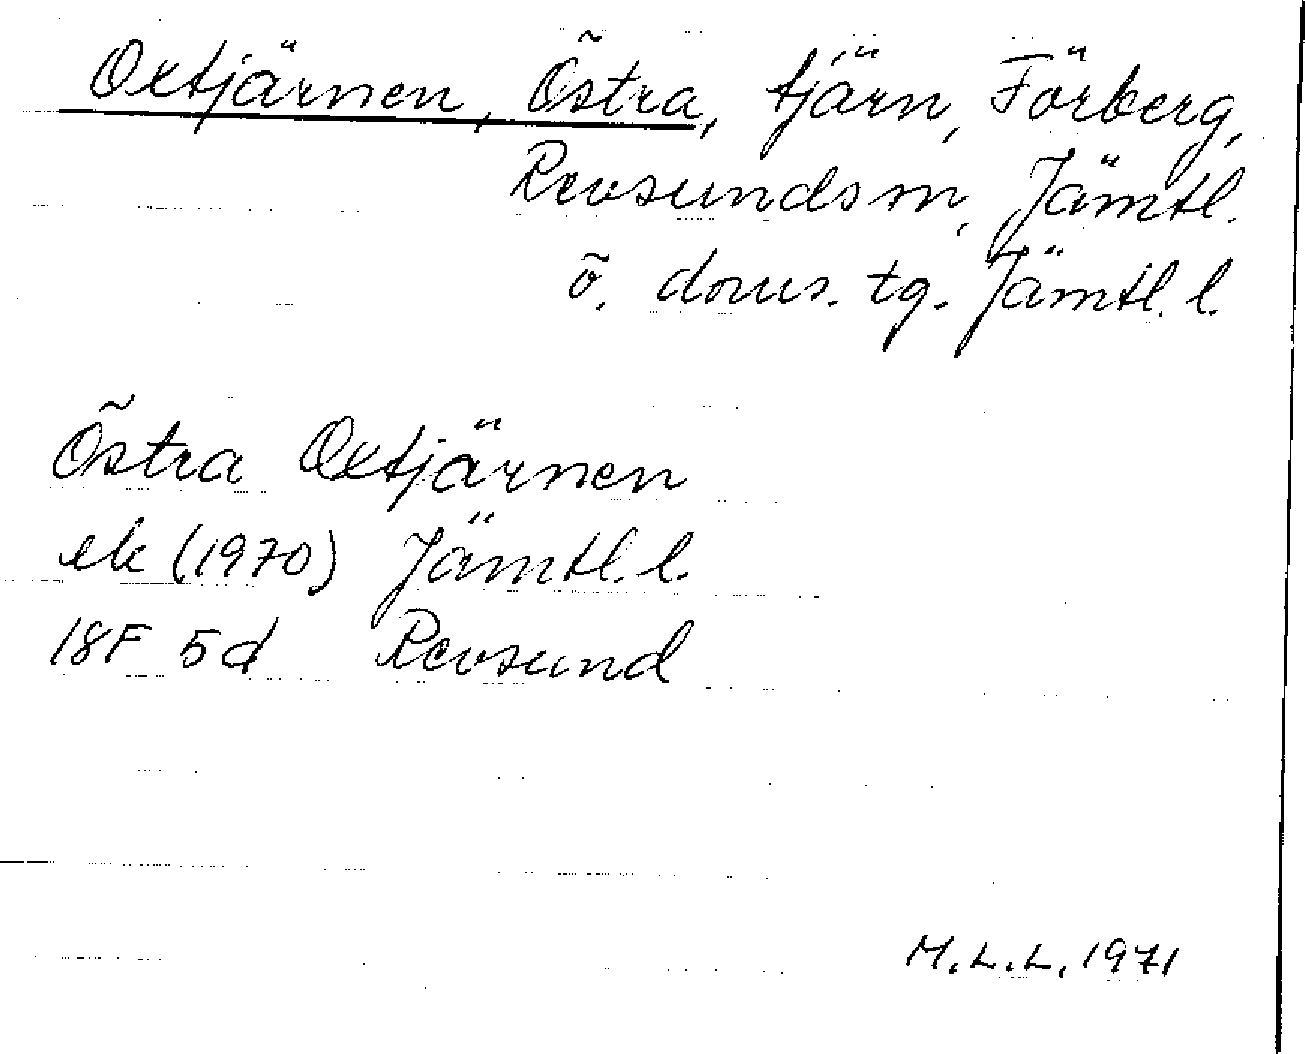 Oxtjärnen, Östra, tjärn, Förberg,
Revsunds sn, Jämtl.
ö. doms. tg. Jämtl. l.
Östra Oxtjärnen
ek (1970) Jämtl. l.
18F 5d Revsund
M.L.L. 1971